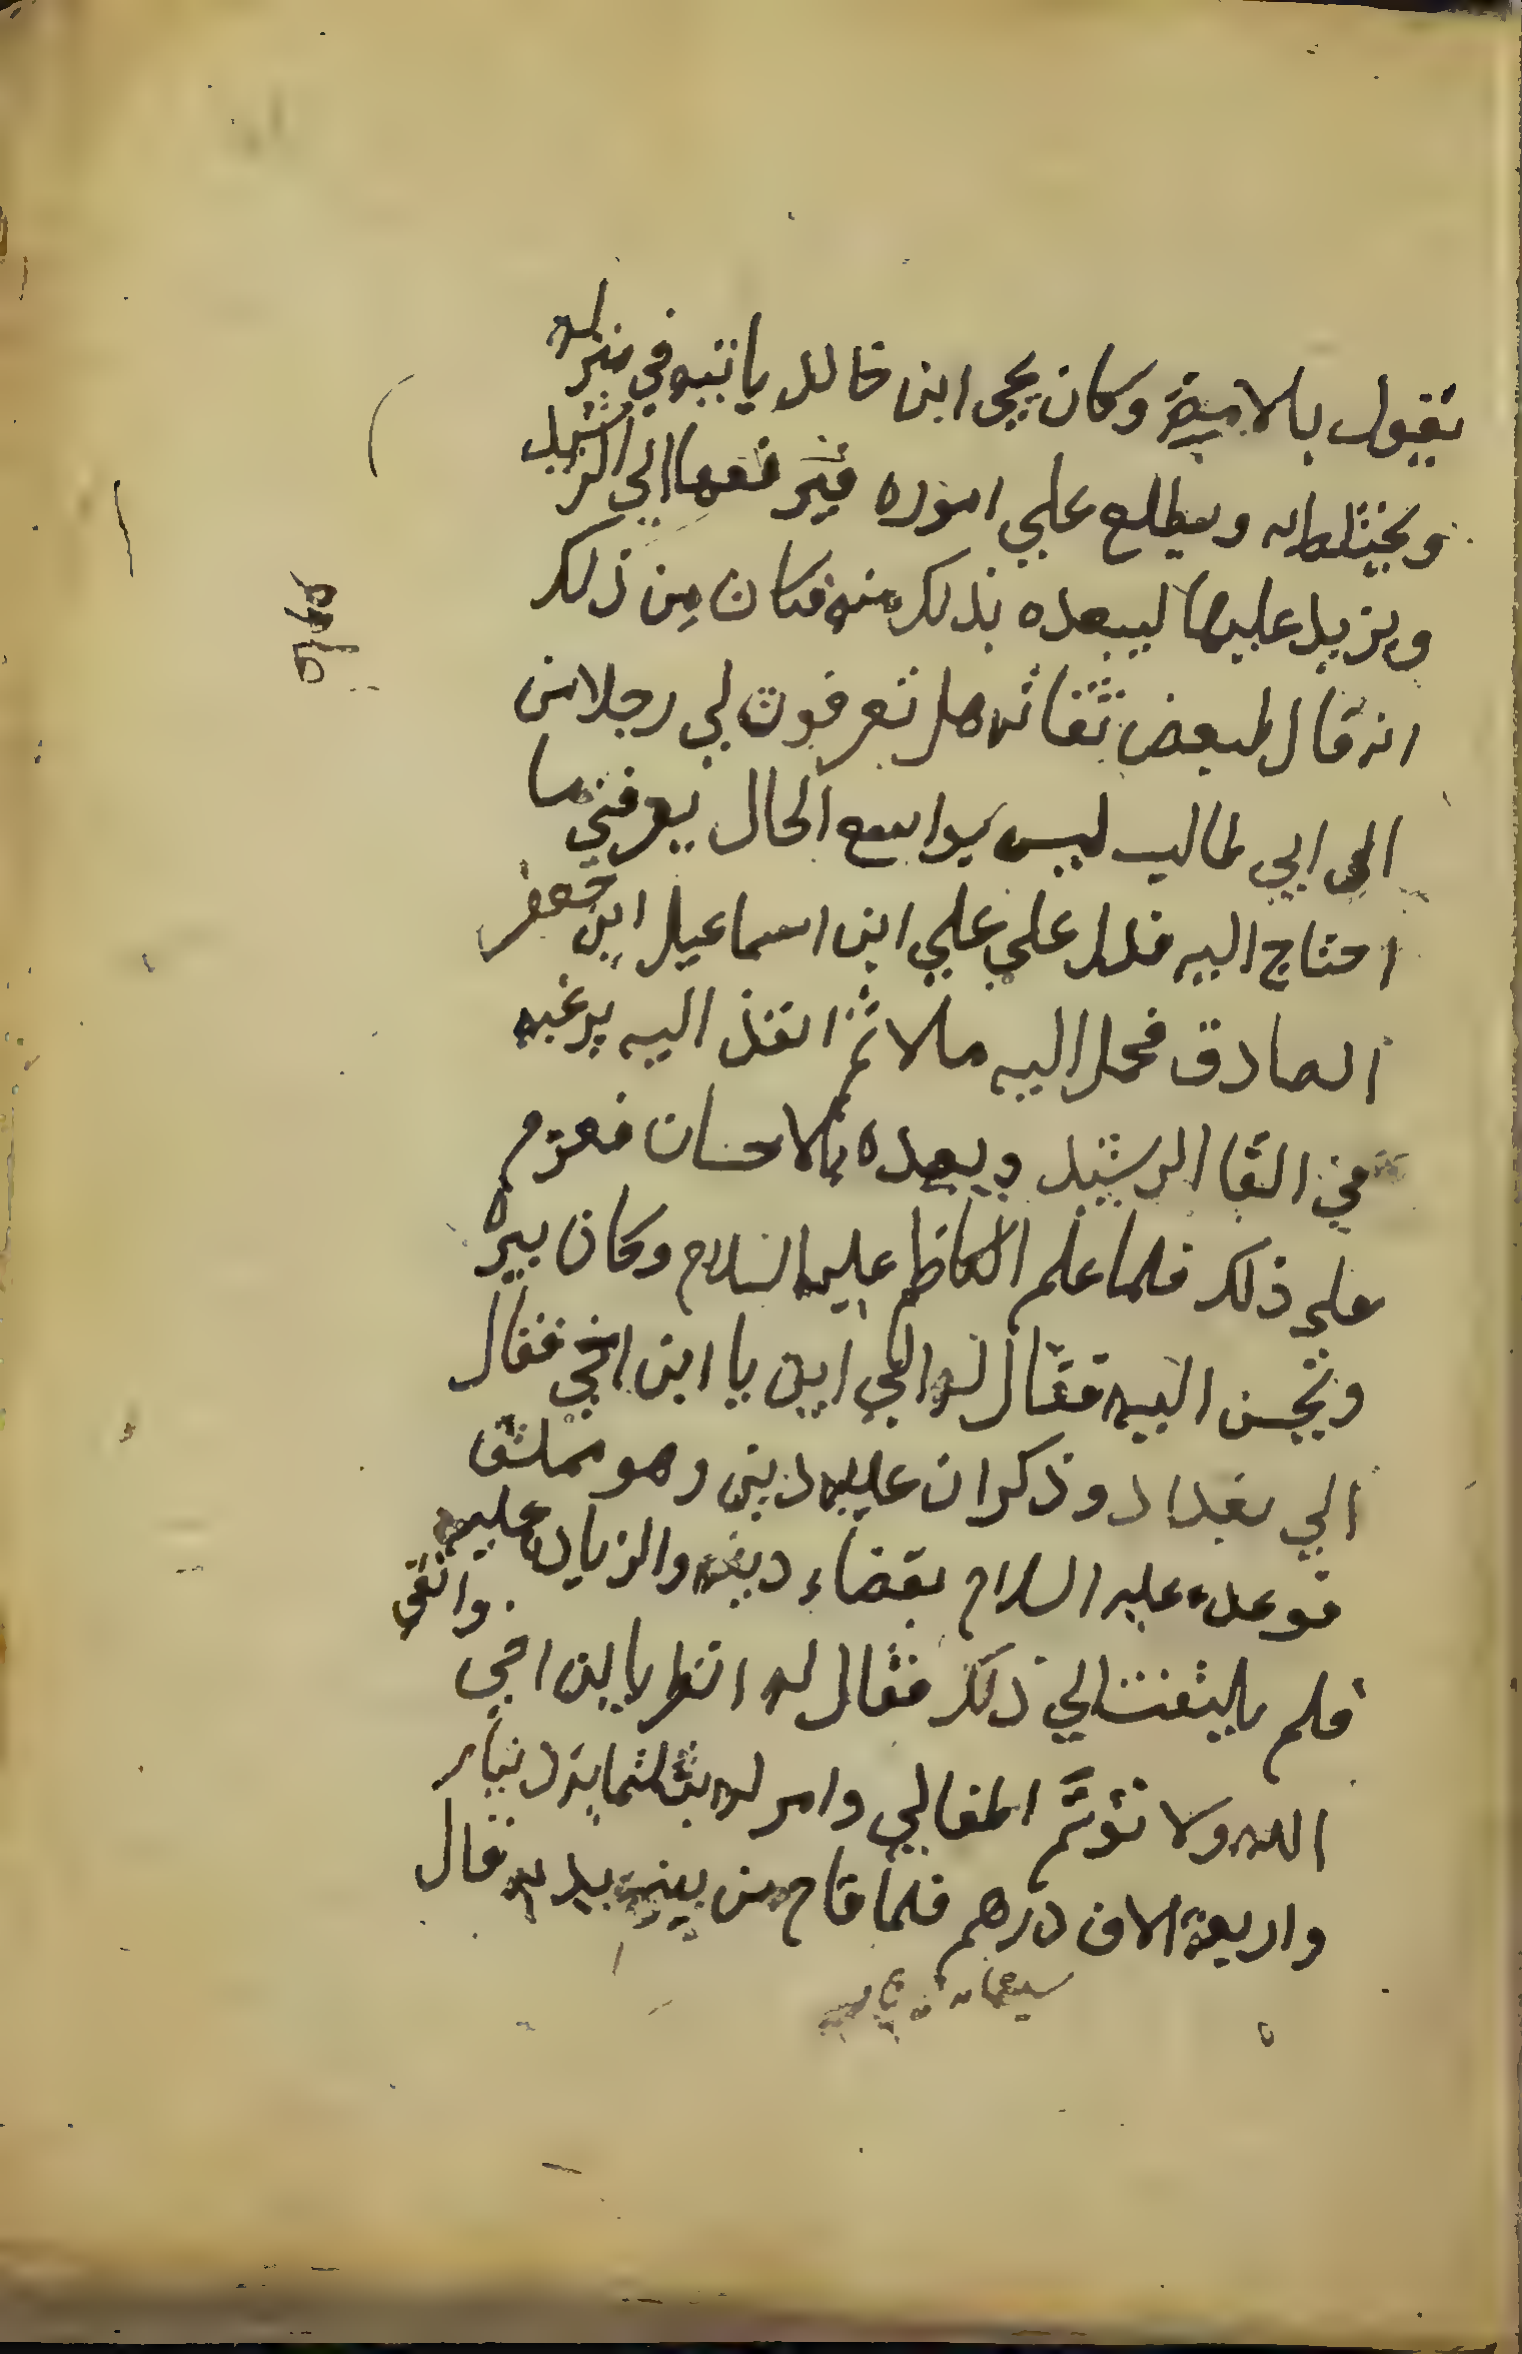 يقول بالامامة وكان يحيى ابن خالد ياتيه في منزله
ويختلط به ويطلع على اموره فيرفعها الي الرشيد
ويزيد عليها ليبعده بذلك منه فكان من ذلك
انه قال لبعض ثقاته هل تعرفون لي رجلا من
ال ابي طالب ليس بواسع الحال يعرفني ما
احتاج اليه فدل علي علي ابن اسماعيل ابن جعفر
الصادق فحمل اليه مالا ثم انفذ اليه يرغبه
في القا الرشيد ويعده بالاحسان فعزم
علي ذلك فلما علم الكاظم عليه السلام وكان يبره
ويحسن اليه فقال له الي اين يا ابن اخي فقال
الي بغداد وذكر ان عليه دين وهو مملق
فوعده عليه السلام بقضاء دينه والزيادة عليه
فلم يلتفت الي ذلك فقال له انظر يا ابن اخي واتقي
الله ولا تؤتم اطفالي وامر له بثلثماية دينار
واربعة الاف درهم فلما قام من بين يديه قال